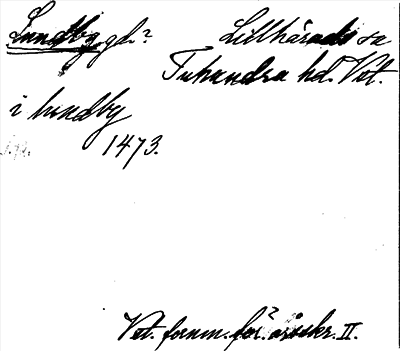 Lundby gd.? Lillhärads sn
Tuhundra hd. Vstl.
i lundby
1473.
Vstl. fornm. för:s årsskr. II.